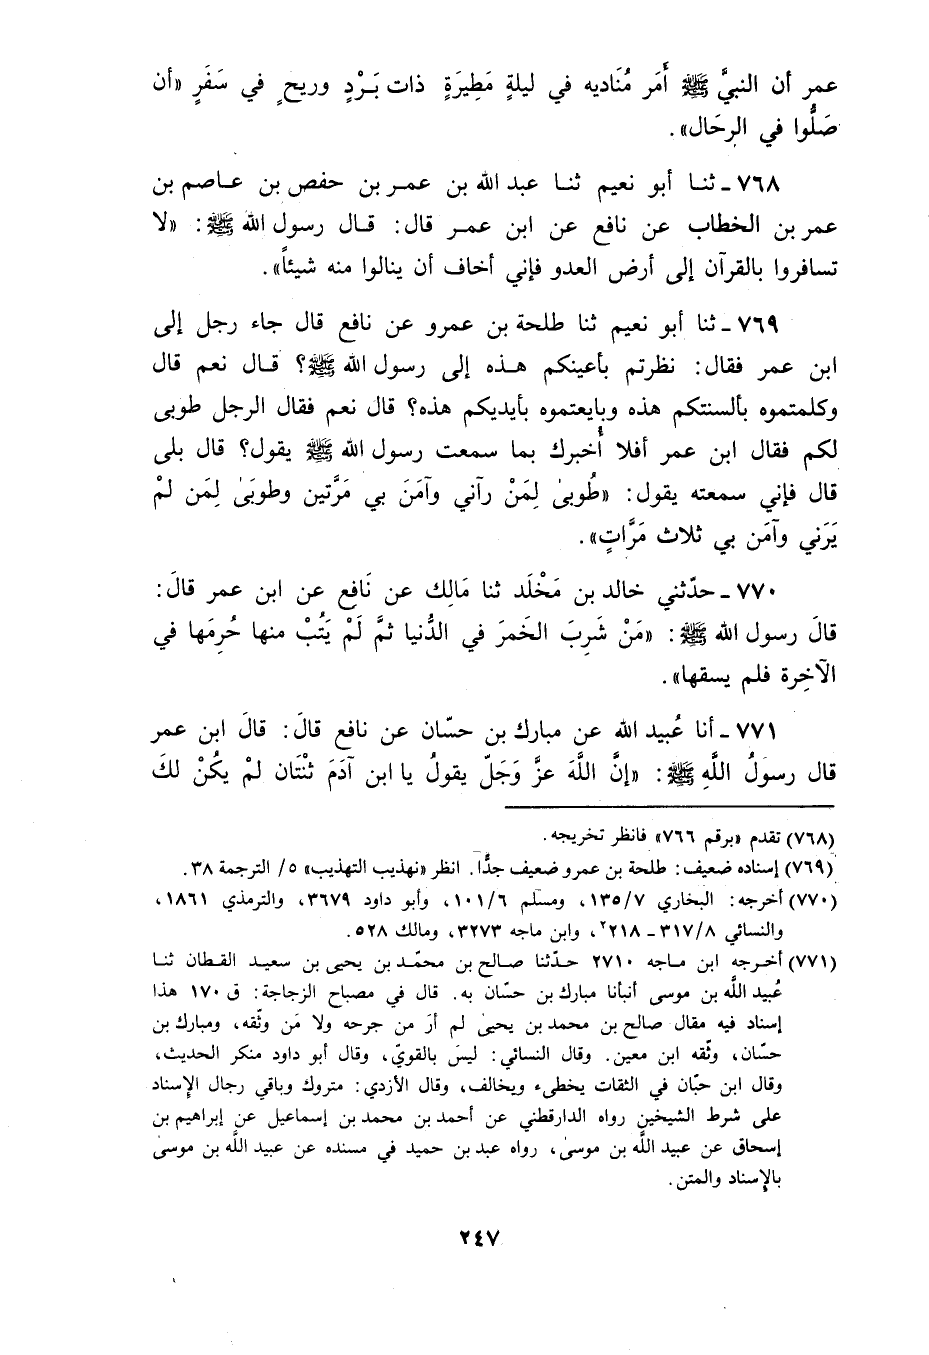 عمر أن النبيَّ ﷺ أَمَر مُنَاديه في ليلةٍ مَطِيرَةٍ ذات بَرْدٍ وريحٍ في سَفَرٍ «أن
صَلُّوا في الرِحَال».
٧٦٨ ـ ثنا أبو نعيم ثنا عبد الله بن عمر بن حفص بن عاصم بن
عمر بن الخطاب عن نافع عن ابن عمر قال: قال رسول الله ﷺ: «لا
تسافروا بالقرآن إلى أرض العدو فإني أخاف أن ينالوا منه شيئاً».
٧٦٩ ـ ثنا أبو نعيم ثنا طلحة بن عمرو عن نافع قال جاء رجل إلى
ابن عمر فقال: نظرتم بأعينكم هذه إلى رسول الله ﷺ؟ قال نعم قال
وكلمتموه بألسنتكم هذه وبايعتموه بأيديكم هذه؟ قال نعم فقال الرجل طوبى
لكم فقال ابن عمر أفلا أُخبرك بما سمعت رسول الله ﷺ يقول؟ قال بلى
قال فإني سمعته يقول: «طُوبىٰ لِمَنْ رآني وآمَنَ بي مَرَّتين وطوبَىٰ لِمَن لمْ
يَرَني وآمَن بي ثلاث مَرَّاتٍ».
٧٧٠ ـ حدّثني خالد بن مَخْلَد ثنا مَالِك عن نَافِع عن ابن عمر قالَ:
قالَ رسول الله ﷺ: «مَنْ شَرِبَ الخَمرَ في الدُّنيا ثمَّ لَمْ يَتُبْ منها حُرِمَها في
الآخِرة فلم يسقها».
٧٧١ ـ أنا عُبيد الله عن مبارك بن حسّان عن نافع قالَ: قالَ ابن عمر
قال رسَولُ اللَّهِ ﷺ: «إنَّ اللَّهَ عزَّ وَجَلّ يقولُ يا ابن آدَمَ ثنْتَان لمْ يكُنْ لكَ
(٧٦٨) تقدم «برقم ٧٦٦» فانظر تخريجه.
(٧٦٩) إسناده ضعيف: طلحة بن عمرو ضعيف جدًّا. انظر «تهذيب التهذيب» ٥/ الترجمة ٣٨.
(٧٧٠) أخرجه: البخاري ١٣٥/٧، ومسلم ١٠١/٦، وأبو داود ٣٦٧٩، والترمذي ١٨٦١،
والنسائي ٣١٧/٨ ـ ٢١٨، وابن ماجه ٣٢٧٣، ومالك ٥٢٨.
(٧٧١) أخرجه ابن ماجه ٢٧١٠ حدّثنا صالح بن محمّد بن يحيى بن سعيد القطان ثنا
عُبيد اللَّه بن موسى أنبأنا مبارك بن حسّان به. قال في مصباح الزجاجة: ق ١٧٠ هذا
إسناد فيه مقال صالح بن محمد بن يحيىٰ لم أرَ من جرحه ولا مَن وثّقه، ومبارك بن
حسّان، وثّقه ابن معين. وقال النسائي: ليسَ بالقويّ، وقال أبو داود منكر الحديث،
وقال ابن حبّان في الثقات يخطىء ويخالف، وقال الأزدي: متروك وباقي رجال الإسناد
على شرط الشيخين رواه الدارقطني عن أحمد بن محمد بن إسماعيل عن إبراهيم بن
إسحاق عن عبيد اللَّه بن موسىٰ، رواه عبد بن حميد في مسنده عن عبيد اللَّه بن موسىٰ
بالإسناد والمتن.
٢٤٧